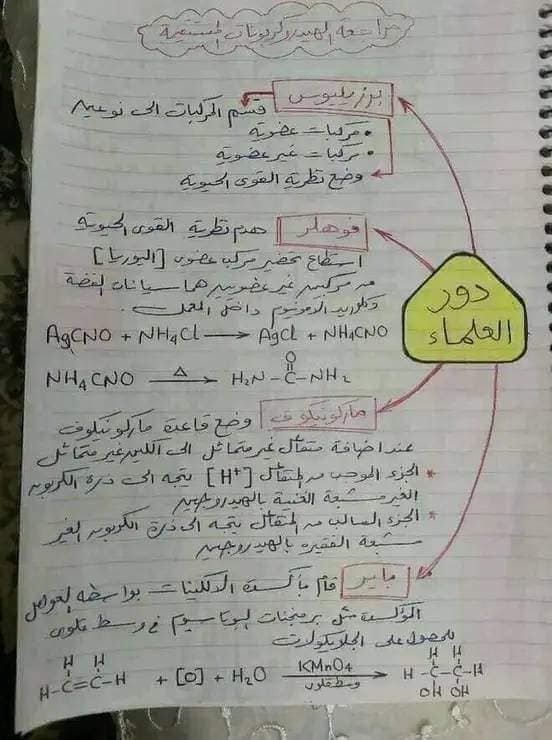 مراجعة الهيدروكربونات المستقيمة
برزيليوس
قسم المركبات الى نوعين
• مركبات عضوية
• مركبات غير عضوية
وضع نظرية القوى الحيوية
دور
العلماء
فوهلر هدم نظرية القوى الحيوية
استطاع تحضير مركب عضوى [اليوريا]
من مركبين غير عضويين هما سيانات الفضة
وكلوريد الامونيوم داخل المعمل
AgCNO + NH4Cl → AgCl + NH4CNO
NH4CNO △→ H2N-C-NH2
O
ماركونيكوف وضع قاعدة ماركونيكوف
عند اضافة متفاعل غير متماثل الى الكين غير متماثل
* الجزء الموجب من المتفاعل [H+] يتجه الى ذرة الكربون
الغير مشبعة الغنية بالهيدروجين
* الجزء السالب من المتفاعل يتجه الى ذرة الكربون الغير
مشبعة الفقيرة بالهيدروجين
باير قام بأكسدة الالكينات بواسطة العوامل
المؤكسدة مثل برمنجنات البوتاسيوم فى وسط قلوى
للحصول على الجليكولات
H H
H-C=C-H + [O] + H2O KMnO4 → H-C-C-H
وسط قلوى
H H
OH OH